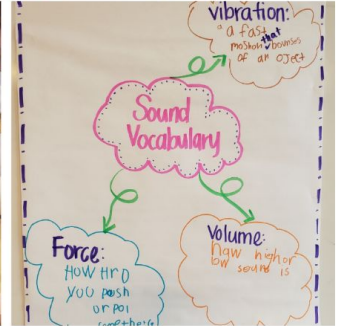 vibration:
a fast
moshon that bounses
of an oject
Sound
Vocabulary
Force:
HOW HrD
YOU posh
or pol
Volume:
haw high or
low sound is